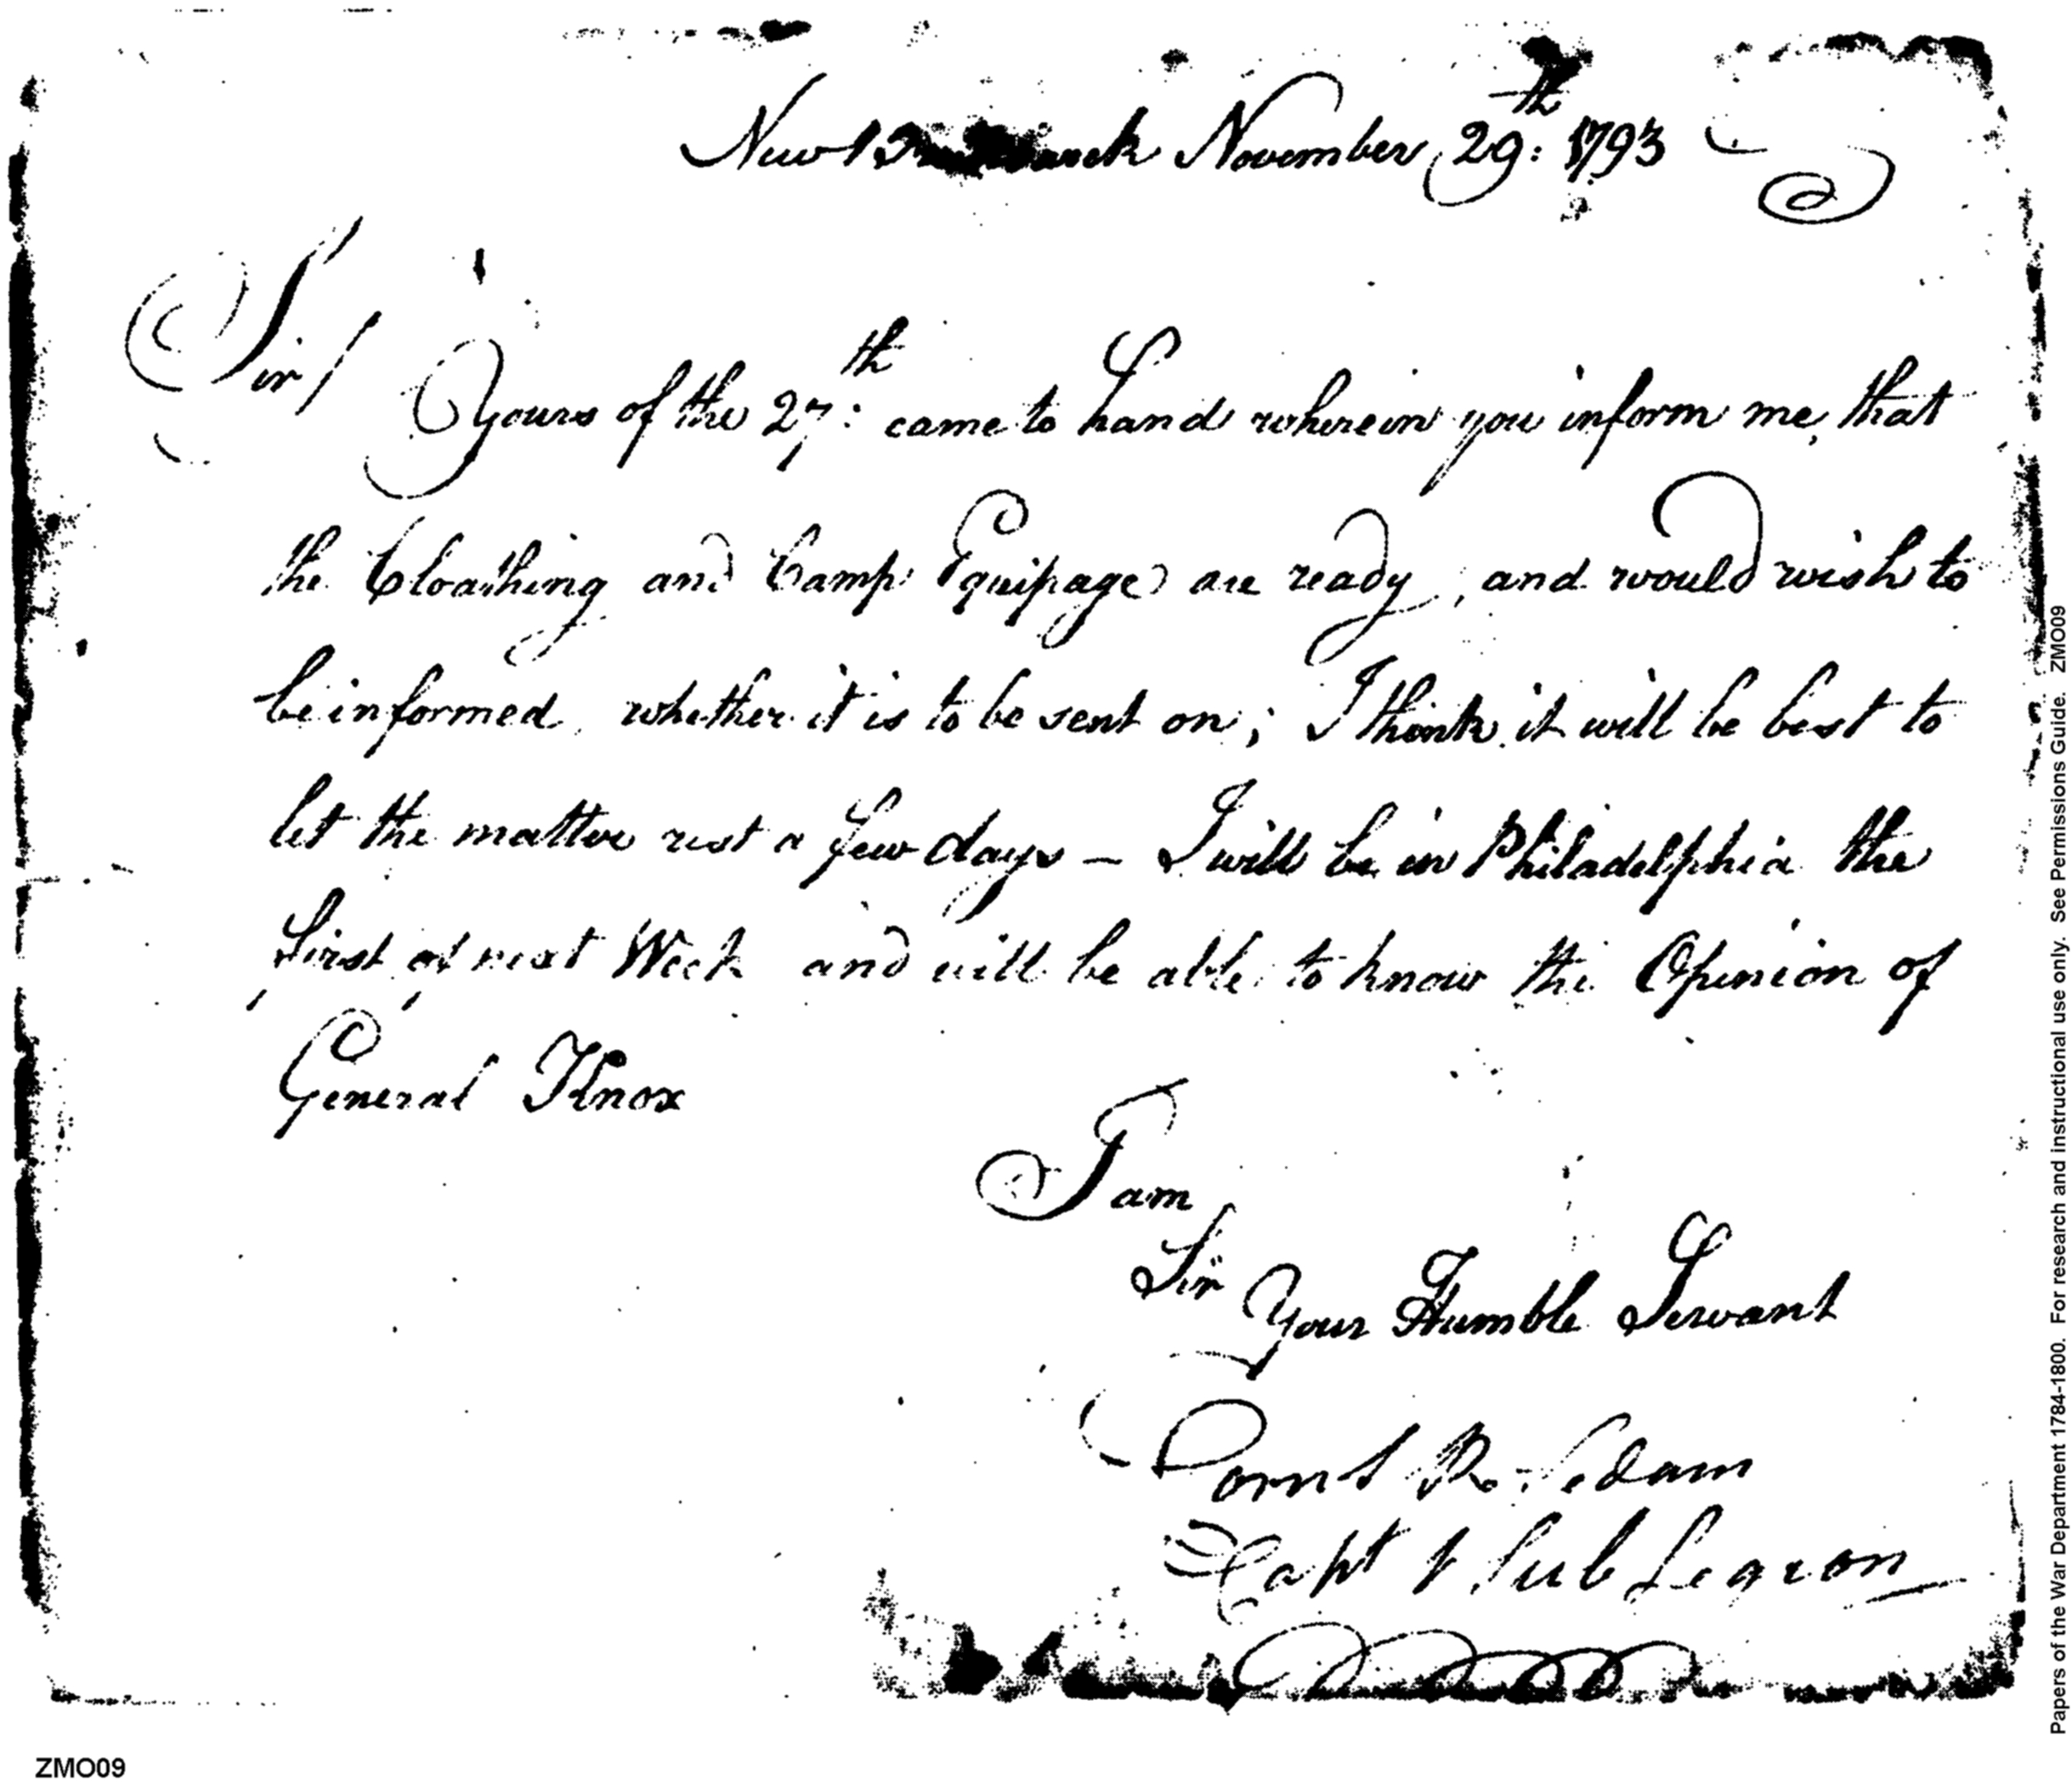 New Brunswick November 29th: 1793
Sir/
Yours of the 27th: came to hand wherein you inform me, that
the Cloathing and Camp Equipage are ready, and would wish to
be informed whether it is to be sent on; I think it will be best to
let the matter rest a few days — I will be in Philadelphia the
first of next Week and will be able to know the Opinion of
General Knox
I am
Sir
Your Humble Servant
Corn's R. Sedam
Capt 1 Sub Legion
Papers of the War Department 1784-1800. For research and instructional use only. See Permissions Guide. ZMO09
ZMO09